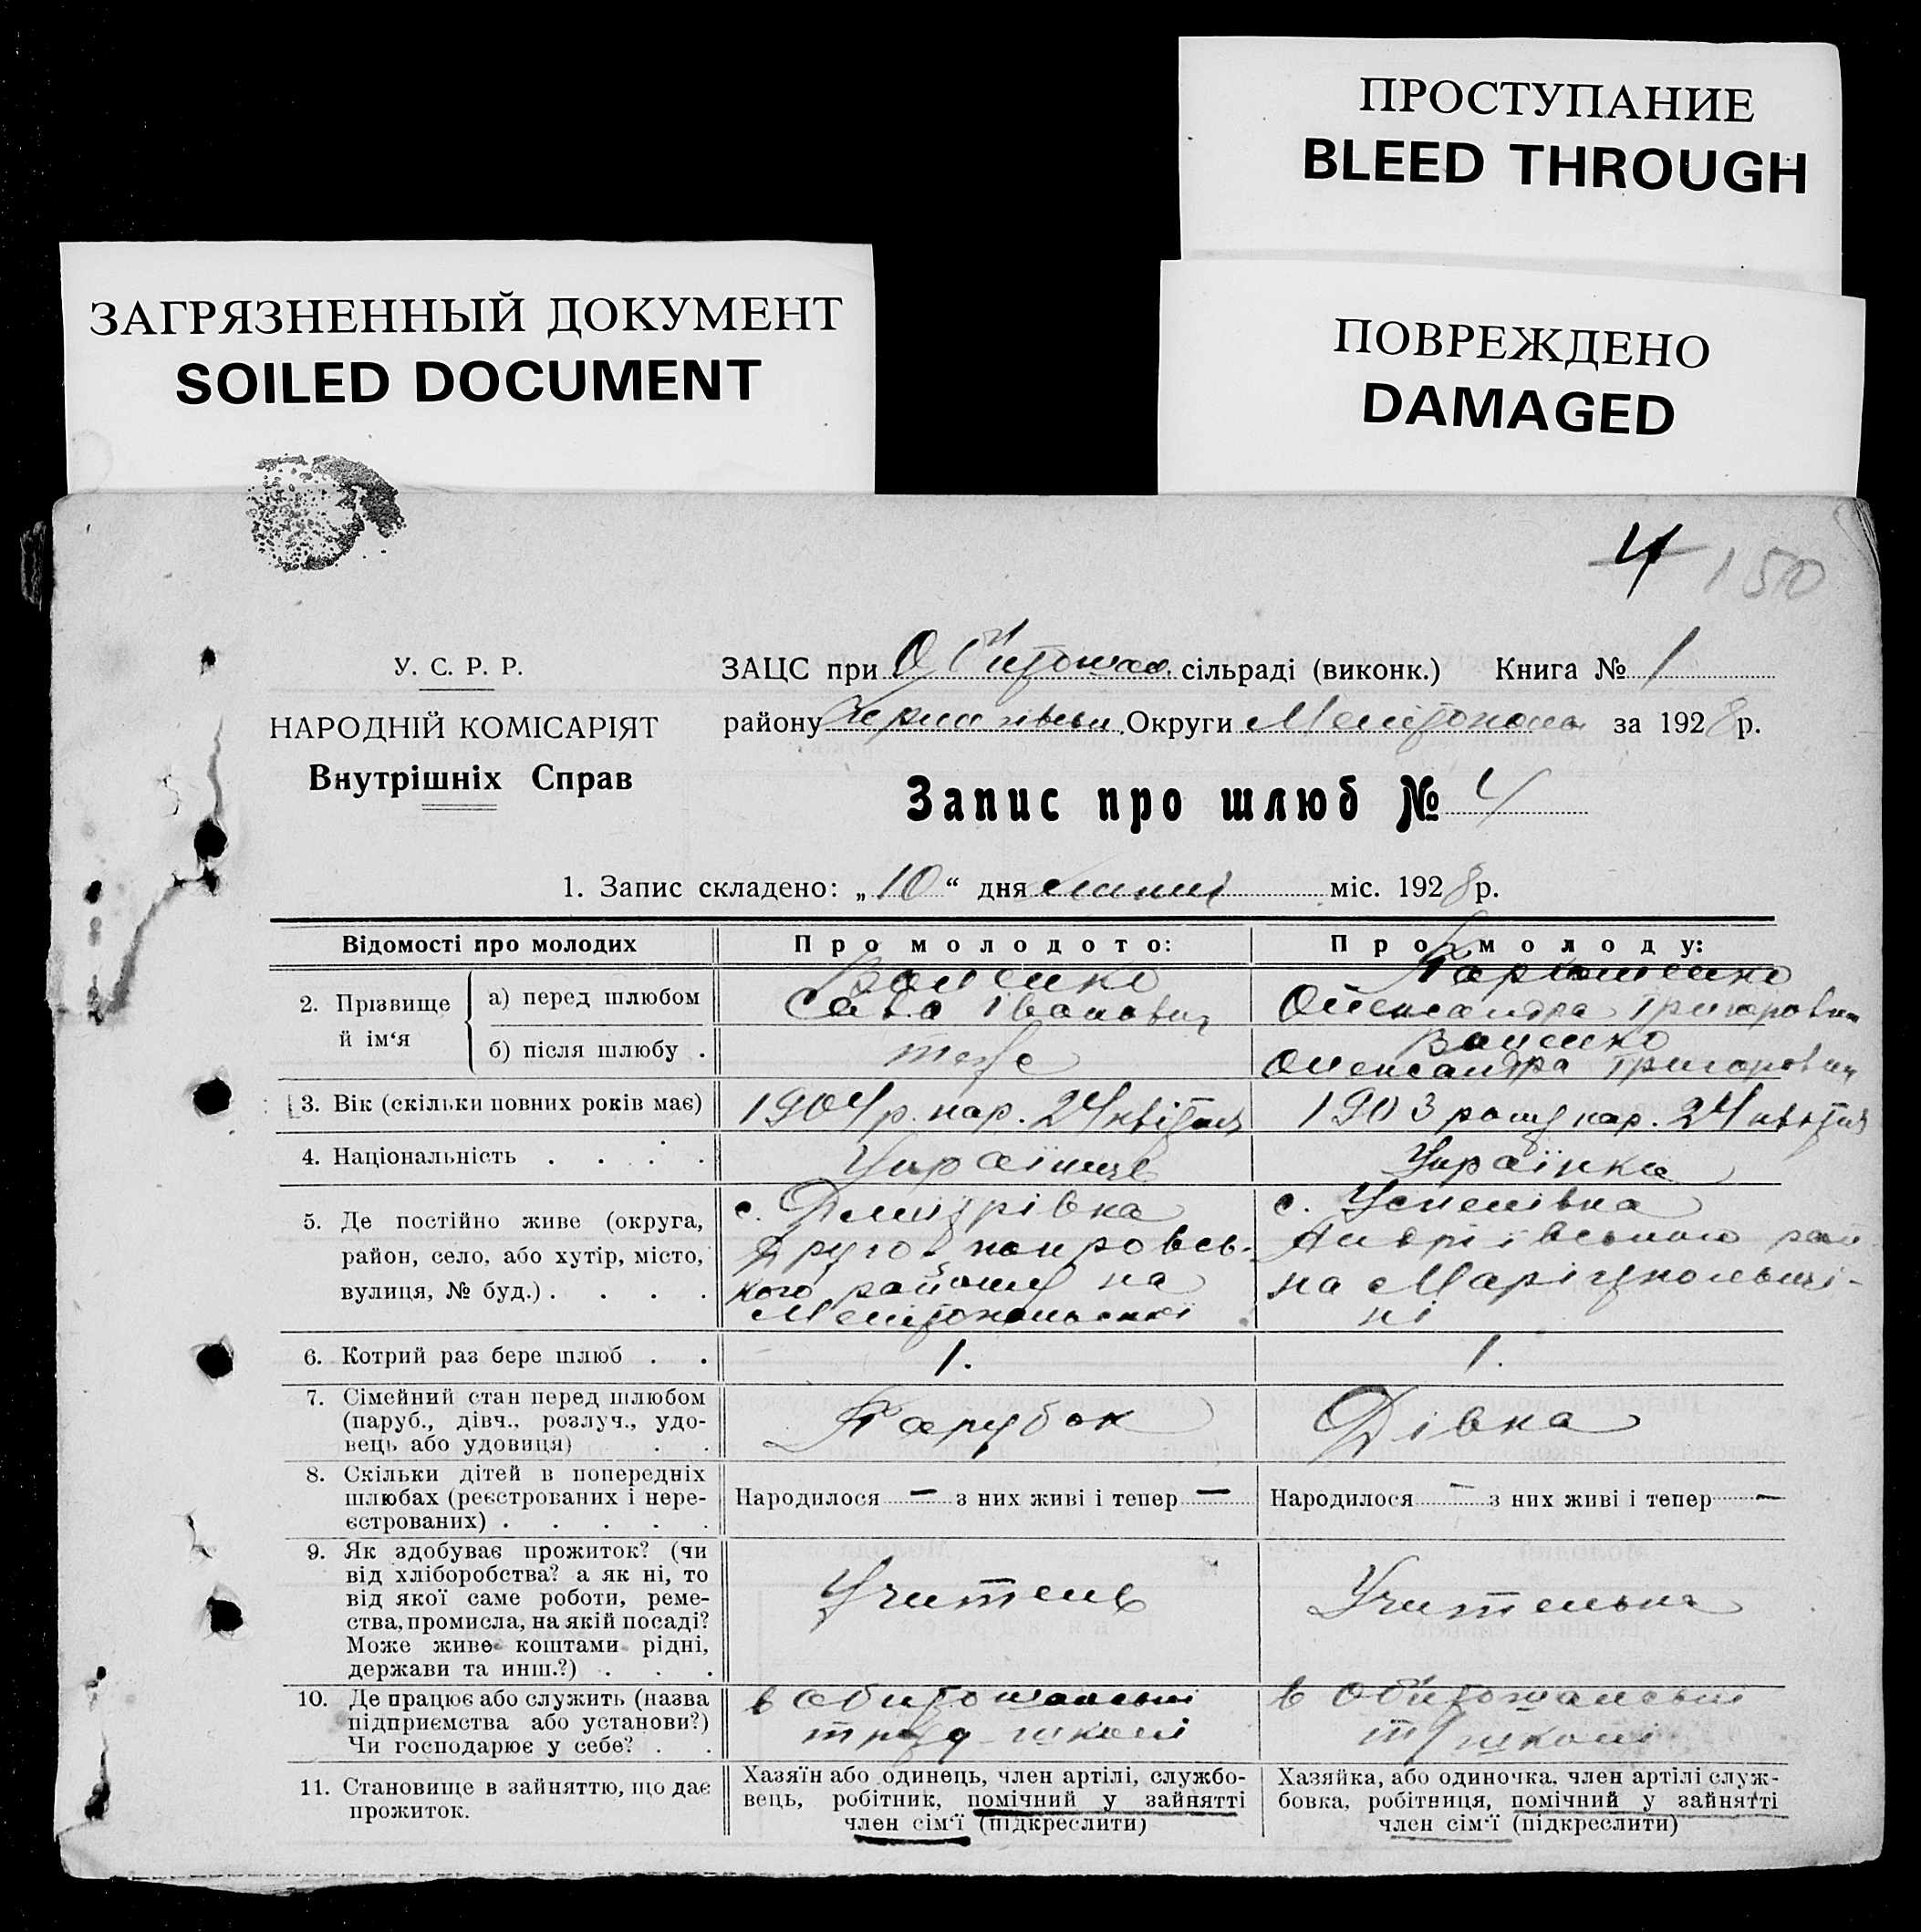 ПРОСТУПАНИЕ
BLEED THROUGH
ЗАГРЯЗНЕННЫЙ ДОКУМЕНТ
SOILED DOCUMENT
ПОВРЕЖДЕНО
DAMAGED
4 150
У. С. Р. Р.
НАРОДНІЙ КОМІСАРІЯТ
Внутрішніх Справ
ЗАЦС при сільраді (виконк.) Книга № 1
району Округи за 1928 р.
Запис про шлюб № 4
1. Запис складено: „ 10 “ дня міс. 1928 р.
Відомості про молодих
Про молодого:
Про молоду:
2. Прізвище й ім‘я
а) перед шлюбом
Сава Іванович
Пархоменко
Олександра Григоровн
б) після шлюбу .
теж
Олександра Григоровн
3. Вік (скільки повних років має)
1904 р. нар. 24 квітня
1903 року нар. 24 квітня
4. Національність . . . .
Українець
Українка
5. Де постійно живе (округа,
район, село, або хутір, місто,
вулиця, № буд.) . . . .
с. Дмитрівка
Друго-покровсь-
кого району на
с. Успенівка
Андріївського рай
на Маріупольщі-
ні
6. Котрий раз бере шлюб . .
1.
1.
7. Сімейний стан перед шлюбом
(паруб., дівч., розлуч., удо-
вець або удовиця) . .
Парубок
Дівка
8. Скільки дітей в попередніх
шлюбах (реєстрованих і нере-
єстрованих) . . . . .
Народилося — з них живі і тепер —
Народилося — з них живі і тепер —
9. Як здобуває прожиток? (чи
від хліборобства? а як ні, то
від якої саме роботи, реме-
ства, промисла, на якій посаді?
Може живе коштами рідні,
держави та инш.?) . . .
Учитель
Учителька
10. Де працює або служить (назва
підприємства або установи?)
Чи господарює у себе? . .
в Обитошанські
труд-школі
в Обитошанські
т/школі
11. Становище в зайняттю, що дає
прожиток.
Хазяїн або одинець, член артілі, службо-
вець, робітник, помічний у зайнятті
член сім‘ї (підкреслити)
Хазяйка, або одиночка, член артілі служ-
бовка, робітниця, помічний у зайнятті
член сім‘ї (підкреслити)